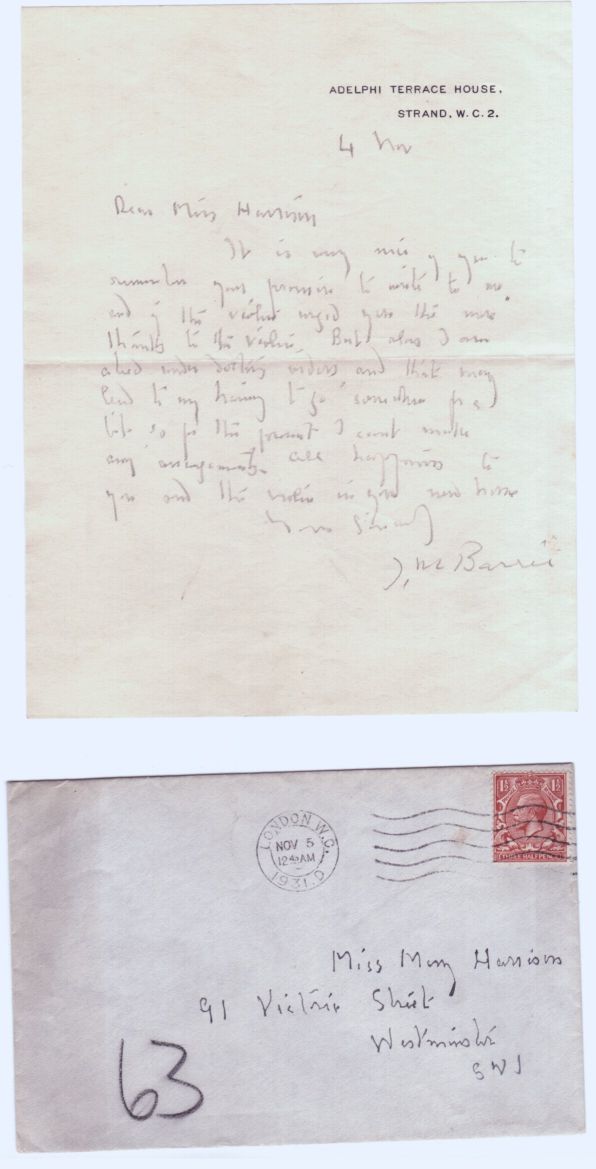 ADELPHI TERRACE HOUSE,
STRAND, W.C. 2.
4 Nov
Dear Miss Harrison
It is very nice of you to
remember your promise to write to me
and if the violin urged you the more
thanks to the violin. But alas I am
under doctors orders and that may
lead to my having to go somewhere for a
bit so for the present I cannot make
any arrangements. All happiness to
you and the violin in your new home
Yours Sincerely
J. M. Barrie
LONDON. W.C.
NOV 5
12 45 AM
1931. D
1½ 1½
THREE HALFPENCE
Miss Mary Harrison
91 Victoria Street
Westminster
SW1
63